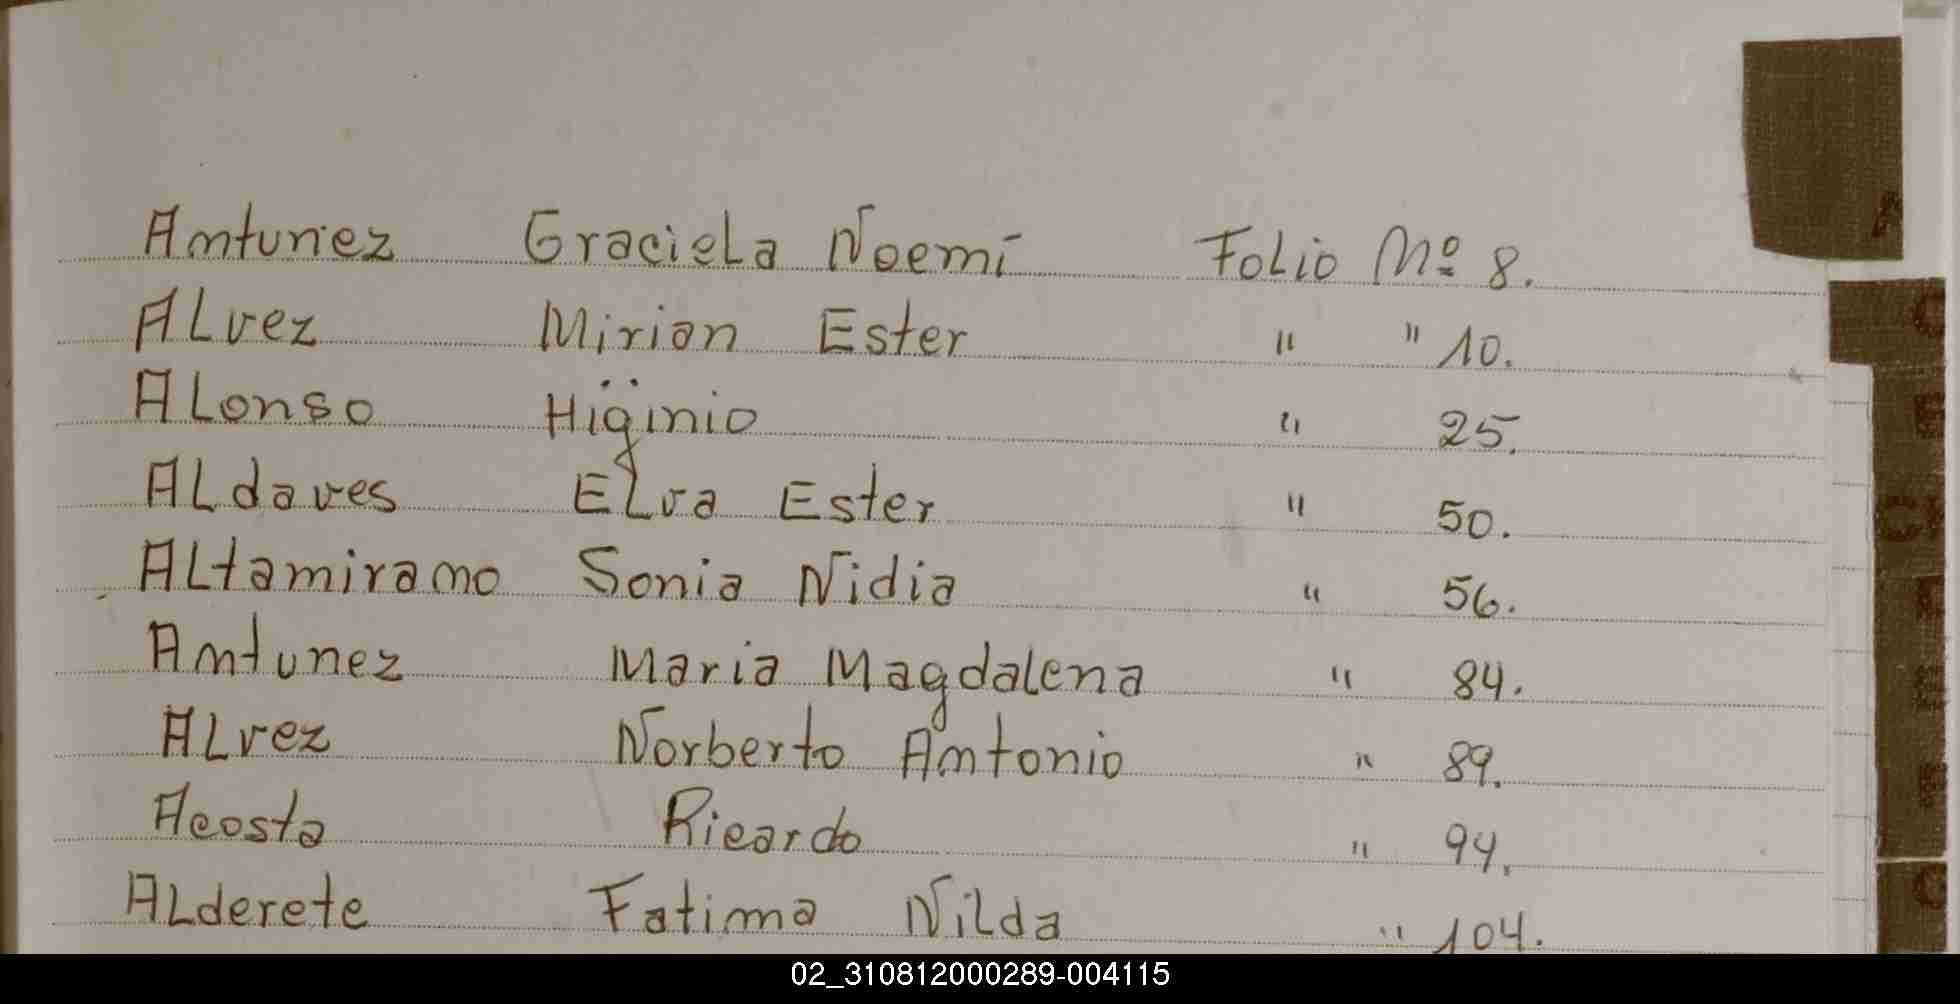 Antunez Graciela Noemí Folio Nº 8.
ALvez Mirian Ester " " 10.
ALonso Higinio " 25.
ALdaves ELva Ester " 50.
ALtamirano Sonia Nidia " 56.
Antunez Maria Magdalena " 84.
ALvez Norberto Antonio " 89.
Acosta Ricardo " 94.
ALderete Fatima Nilda " 104.
A
C
E
CH
E
C
02_310812000289-004115